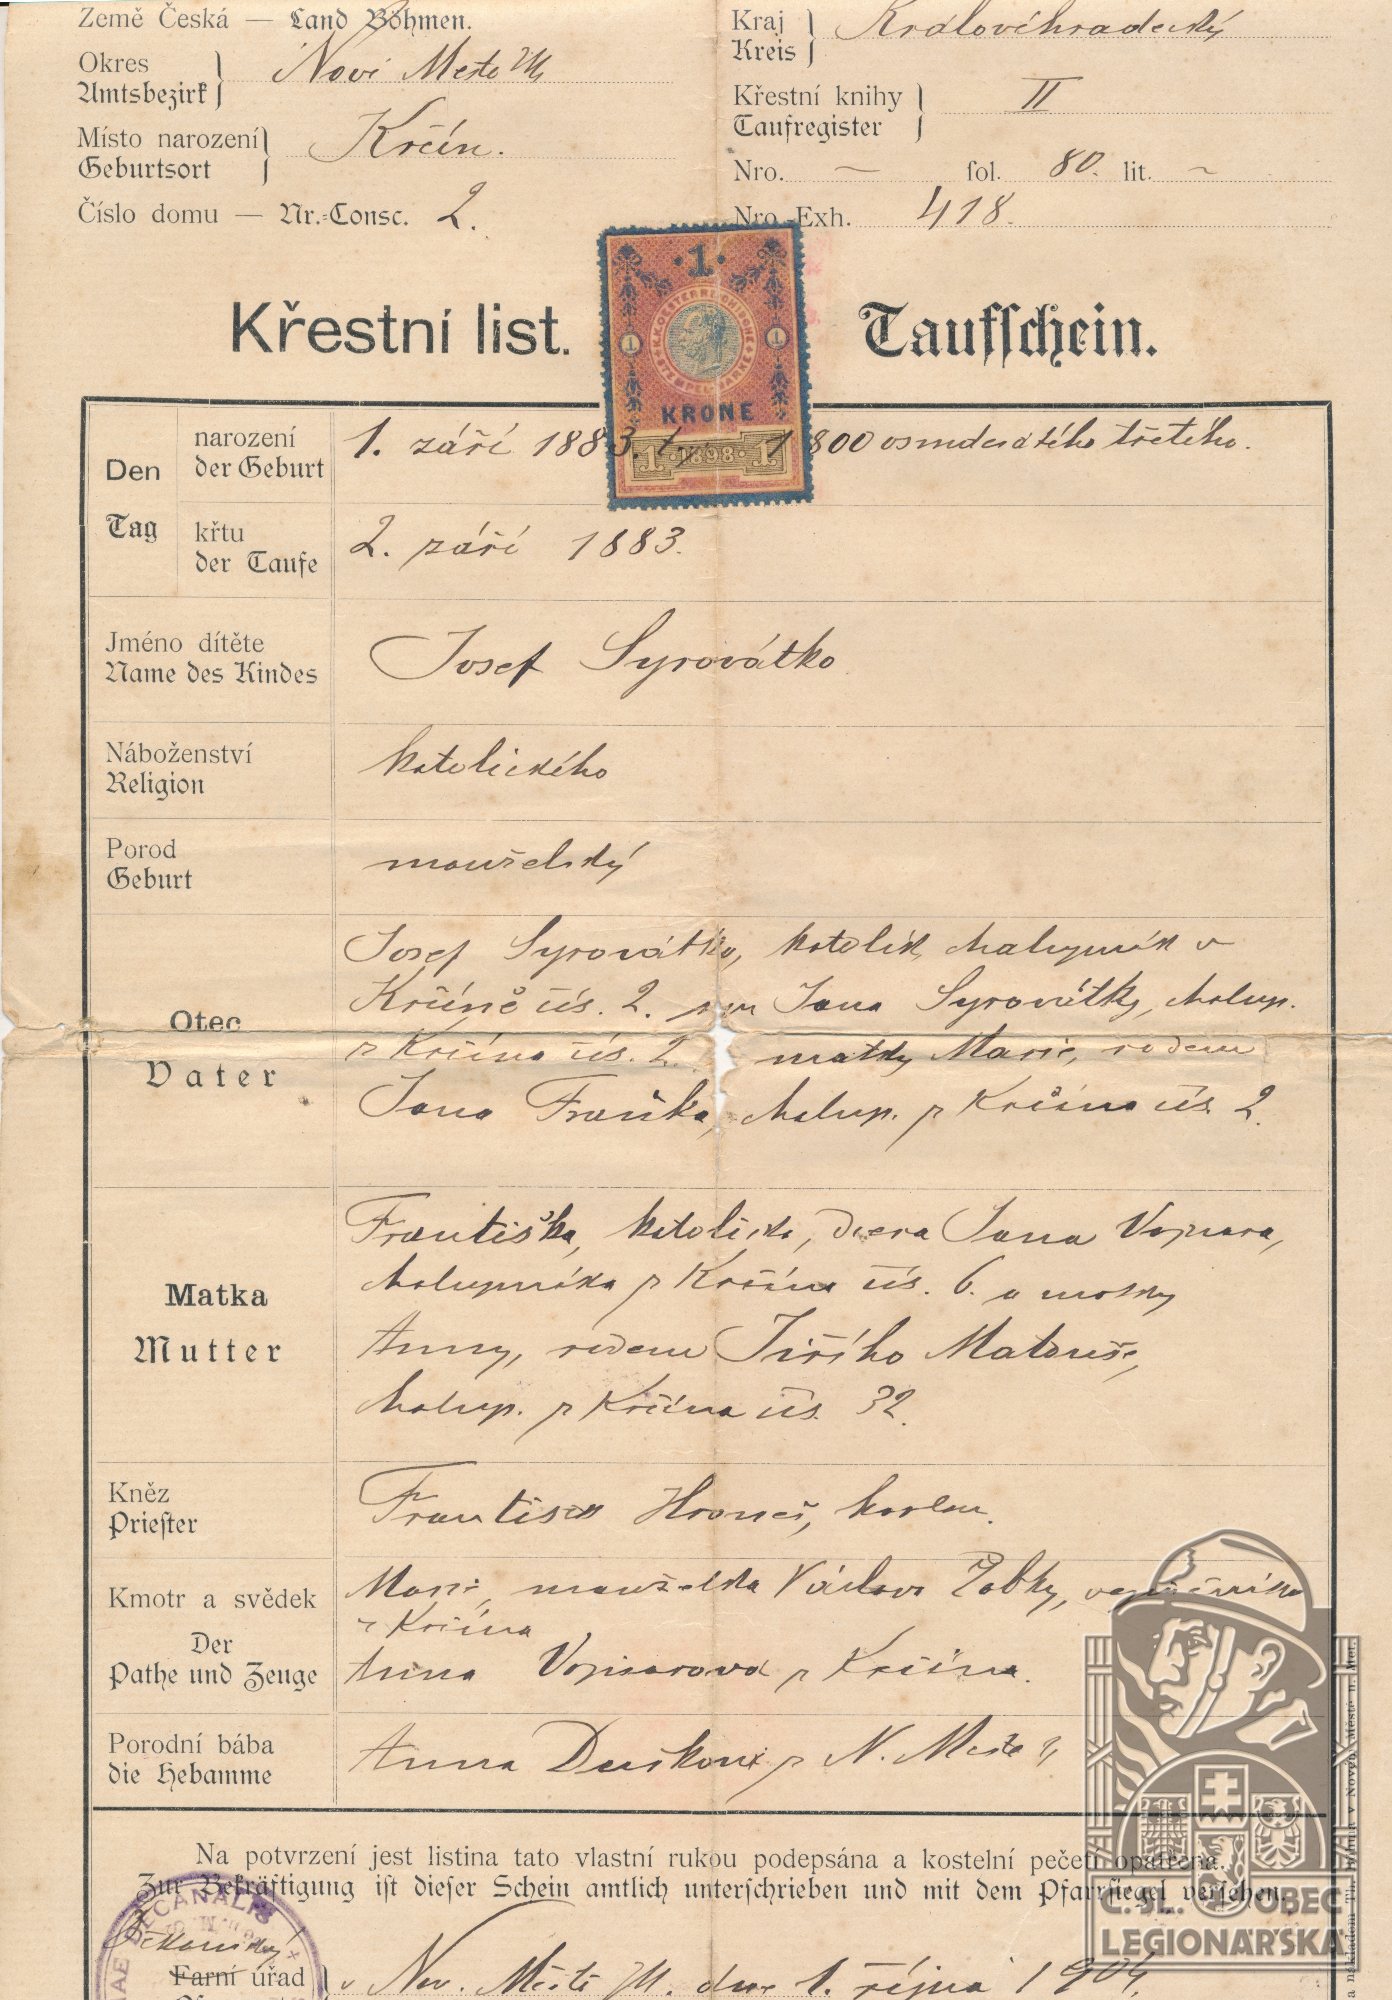 Země Česká — Land Böhmen.
Kraj Kreis Královéhradecký
Okres Amtsbezirk Nové Město M
Křestní knihy Taufregister II
Místo narození Geburtsort Krčín.
Nro. — fol. 80. lit. ~
Číslo domu — Nr.-Consc. 2.
Nro. Exh. 418.
Křestní list.
Taufschein.
· 1 ·
K.K. OESTERREICHISCHE STEMPEL-MARKE
1 1
KRONE
1 · 1898 · 1
Den Tag
narození der Geburt
1. září 1883. 1800 osmdesátého třetího.
křtu der Taufe
2. září 1883.
Jméno dítěte
Name des Kindes
Josef Syrovátko
Náboženství
Religion
katolického
Porod
Geburt
manželský
Otec
Vater
Josef Syrovátko, katolík, chalupník v
Krčíně čís. 2. syn Jana Syrovátky, chalup.
z Krčína čís. 2. matky Marie, rodem
Jana Fraňka, chalup. z Krčína čís. 2.
Matka
Mutter
Františka, katolička, dcera Jana Vojnara,
chalupníka z Krčína čís. 6. a matky
Anny, rodem Jiřího Matouše,
chalup. z Krčína čís. 32.
Kněz
Priester
František kaplan.
Kmotr a svědek
Der
Pathe und Zeuge
Marie, manželka Václava Žabky,
z Krčína
Anna z Krčína.
Porodní bába
die Hebamme
Anna Dušková z N. Města
Na potvrzení jest listina tato vlastní rukou podepsána a kostelní pečetí opatřena.
Zur Bekräftigung ist dieser Schein amtlich unterschrieben und mit dem Pfarrsiegel versehen.
DECANALIS
Děkanský
Farní úřad
v Nov. Městě M. dne 1. října 1904.
Č. SL. OBEC
LEGIONÁŘSKÁ